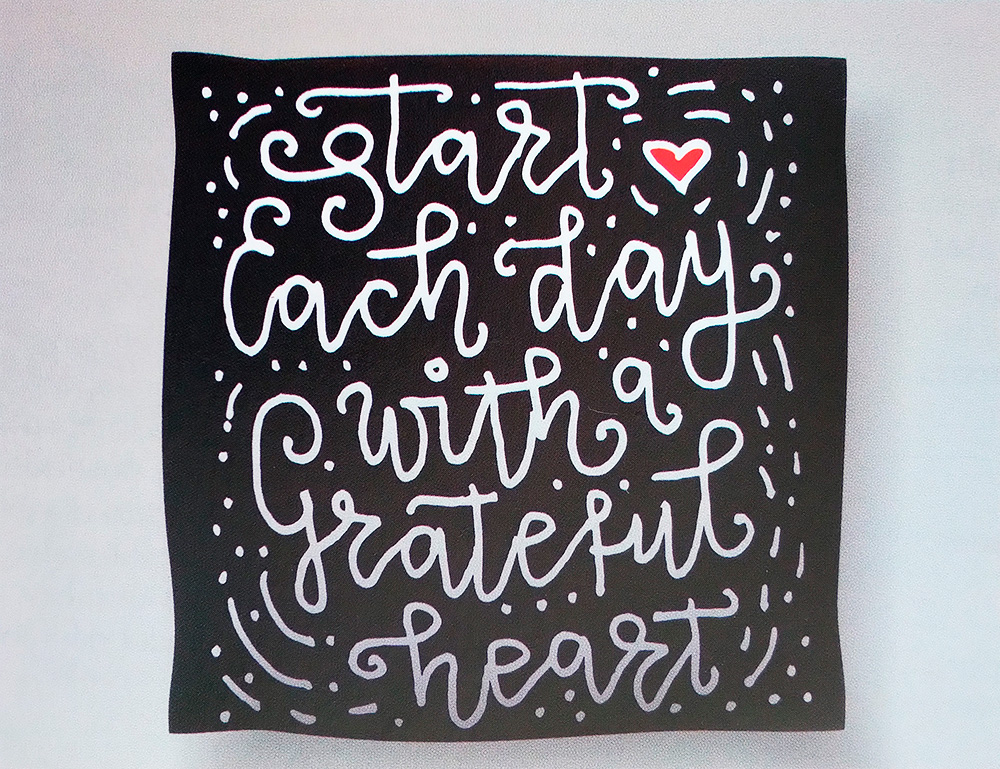 start
Each day
with a
Grateful
heart